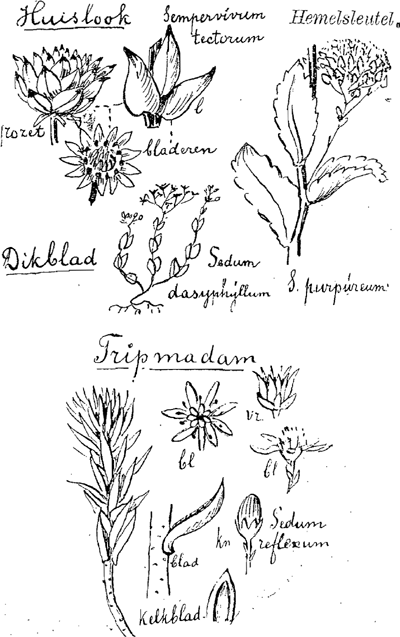 Huislook
Sempervivum
tectorum
Hemelsleutel.
rozet
l
bladeren
Dikblad
Sedum
dasyphyllum
S. purpúreum
Tripmadam
vr.
bl
bl
blad
kn
Sedum
reflexum
Kelkblad